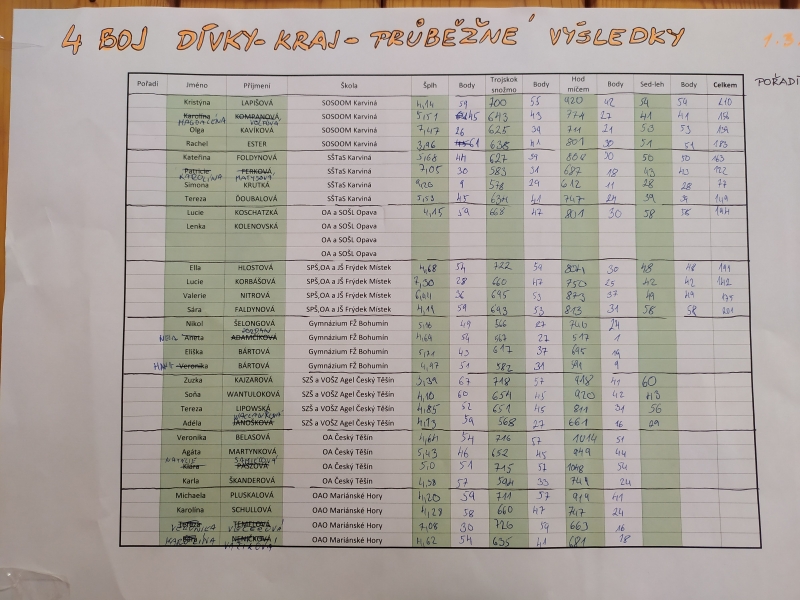 4 BOJ DÍVKY - KRAJ - PRŮBĚŽNÉ VÝSLEDKY
1.3.
POŘADÍ
Pořadí Jméno Příjmení Škola Šplh Body Trojskok snožmo Body Hod míčem Body Sed-leh Body Celkem
Kristýna LAPIŠOVÁ SOSOOM Karviná 4,14 59 700 55 920 42 54 54 210
MAGDALÉNA SOSOOM Karviná 5,51 45 643 43 774 27 41 41 156
Olga KAVÍKOVÁ SOSOOM Karviná 7,47 26 625 39 711 21 53 53 139
Rachel ESTER SOSOOM Karviná 3,96 61 638 41 801 30 51 51 183
Kateřina FOLDYNOVÁ SŠTaS Karviná 44 627 39 30 50 50 163
KAROLÍNA SŠTaS Karviná 7,05 30 583 31 687 18 43 43 122
Simona KRUTKÁ SŠTaS Karviná 9 578 29 612 11 28 28 77
Tereza ĎOUBALOVÁ SŠTaS Karviná 5,53 45 634 41 747 24 39 39 149
Lucie KOSCHATZKÁ OA a SOŠL Opava 4,15 59 668 47 801 30 58 58 194
Lenka KOLENOVSKÁ OA a SOŠL Opava
OA a SOŠL Opava
OA a SOŠL Opava
Ella HLOSTOVÁ SPŠ,OA a JŠ Frýdek Místek 4,68 54 722 59 30 48 48 191
Lucie KORBÁŠOVÁ SPŠ,OA a JŠ Frýdek Místek 7,30 28 660 47 750 25 42 42 142
Valerie NITROVÁ SPŠ,OA a JŠ Frýdek Místek 36 695 53 873 37 49 49 175
Sára FALDYNOVÁ SPŠ,OA a JŠ Frýdek Místek 4,19 59 693 53 813 31 58 58 201
Nikol ŠELONGOVÁ Gymnázium FŽ Bohumín 49 566 27 740 24
Aneta ADAMČÍKOVÁ Gymnázium FŽ Bohumín 4,69 54 567 27 517 1
Eliška BÁRTOVÁ Gymnázium FŽ Bohumín 5,71 43 617 37 695 19
HANA Veronika BÁRTOVÁ Gymnázium FŽ Bohumín 4,97 51 582 31 591 9
Zuzka KAJZAROVÁ SZŠ a VOŠZ Agel Český Těšín 3,39 67 718 57 918 41 60
Soňa WANTULOKOVÁ SZŠ a VOŠZ Agel Český Těšín 4,10 60 654 45 920 42 43
Tereza LIPOWSKÁ SZŠ a VOŠZ Agel Český Těšín 4,85 52 651 45 811 31 56
Adéla JANOŠKOVÁ SZŠ a VOŠZ Agel Český Těšín 4,13 59 568 27 661 16 29
Veronika BELASOVÁ OA Český Těšín 4,64 54 716 57 1014 51
Agáta MARTYNKOVÁ OA Český Těšín 5,43 46 652 45 949 44
NATÁLIE Klára PASZOVÁ OA Český Těšín 5,0 51 715 57 1048 54
Karla ŠKANDEROVÁ OA Český Těšín 4,38 57 594 33 744 24
Michaela PLUSKALOVÁ OAO Mariánské Hory 4,20 59 711 57 914 41
Karolina SCHULLOVÁ OAO Mariánské Hory 4,28 58 660 47 747 24
VERONIKA TEMELOVÁ OAO Mariánské Hory 7,08 30 726 59 663 16
KAROLÍNA NEMČÍKOVÁ OAO Mariánské Hory 4,62 54 635 41 681 18